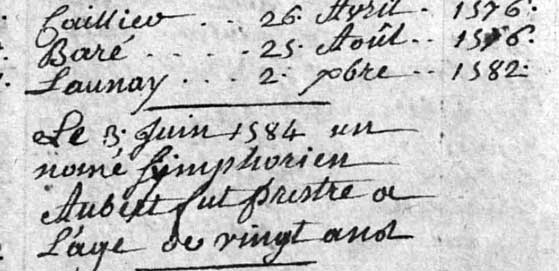 Caillieu . . 26. Avril . 1576.
Baré . . . . 25. Août . . 1576.
Launay . . . 2. xbre . . 1582.
Le 3. Juin 1584 un
nomé Simphorien
Aubert fut prestre a
L'age de vingt ans